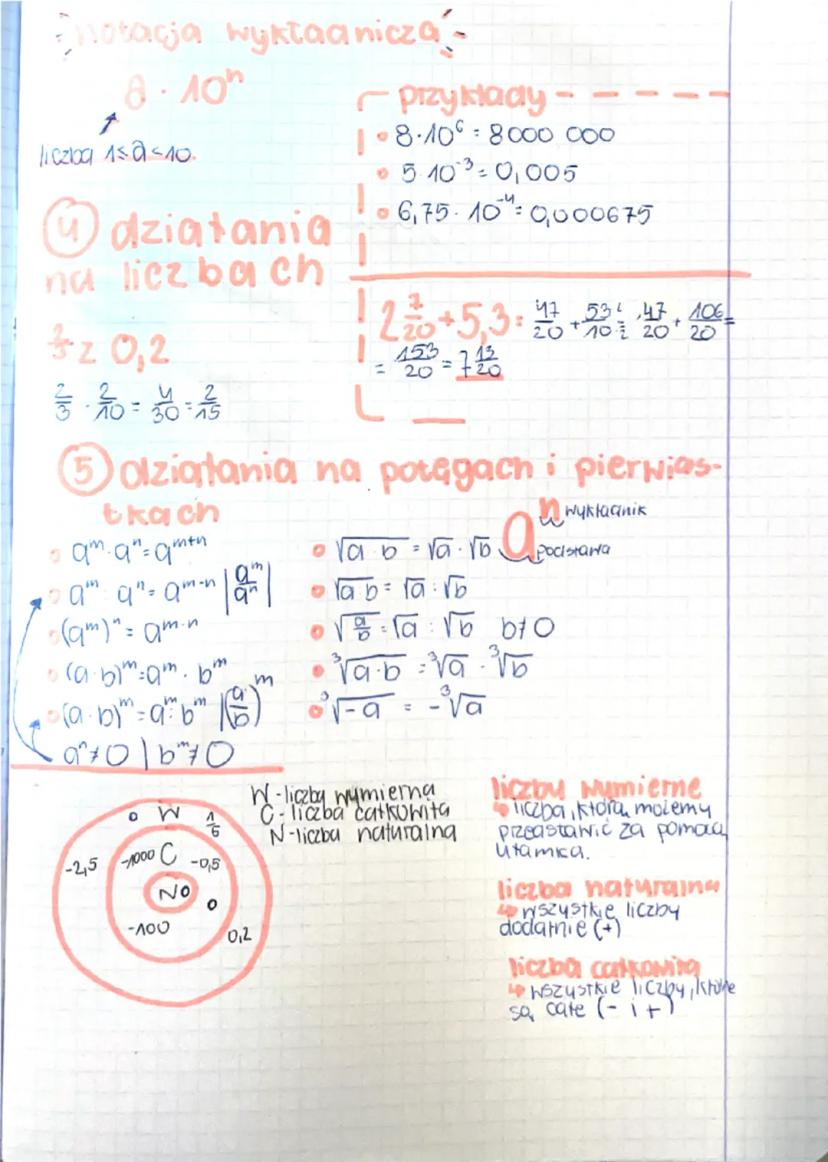 notacja wykładnicza
a · 10ⁿ
liczba 1≤a<10.
przykłady
8·10⁶ = 8000 000
5·10⁻³ = 0,005
6,75 · 10⁻⁴ = 0,000675
④ działania
na liczbach
z 0,2
2/3 · 2/10 = 4/30 = 2/15
2 7/20 + 5,3 = 47/20 + 53/10 = 47/20 + 106/20 =
= 153/20 = 7 13/20
⑤ działania na potęgach i pierwias-
tkach
n wykładnik
a podstawa
aᵐ·aⁿ=aᵐ⁺ⁿ
aᵐ : aⁿ = aᵐ⁻ⁿ | aᵐ/aⁿ |
(aᵐ)ⁿ = aᵐ·ⁿ
(a·b)ᵐ=aᵐ · bᵐ
(a : b)ᵐ=aᵐ : bᵐ |(a/b)ᵐ
aⁿ≠0 | bᵐ≠0
√(a·b) = √a · √b
√(a:b) = √a : √b
√(a/b) = √a : √b b≠0
³√(a·b) = ³√a · ³√b
³√(-a) = -³√a
W-liczby wymierna
C-liczba całkowita
N-liczba naturalna
0 W 1/5
-2,5 -1000 C -0,5
N 0
0
-100
0,2
liczby wymierne
↳ liczba, którą możemy
przedstawić za pomocą
ułamka.
liczba naturalna
↳ wszystkie liczby
dodatnie (+)
liczba całkowita
↳ wszystkie liczby, które
są całe (- i +)